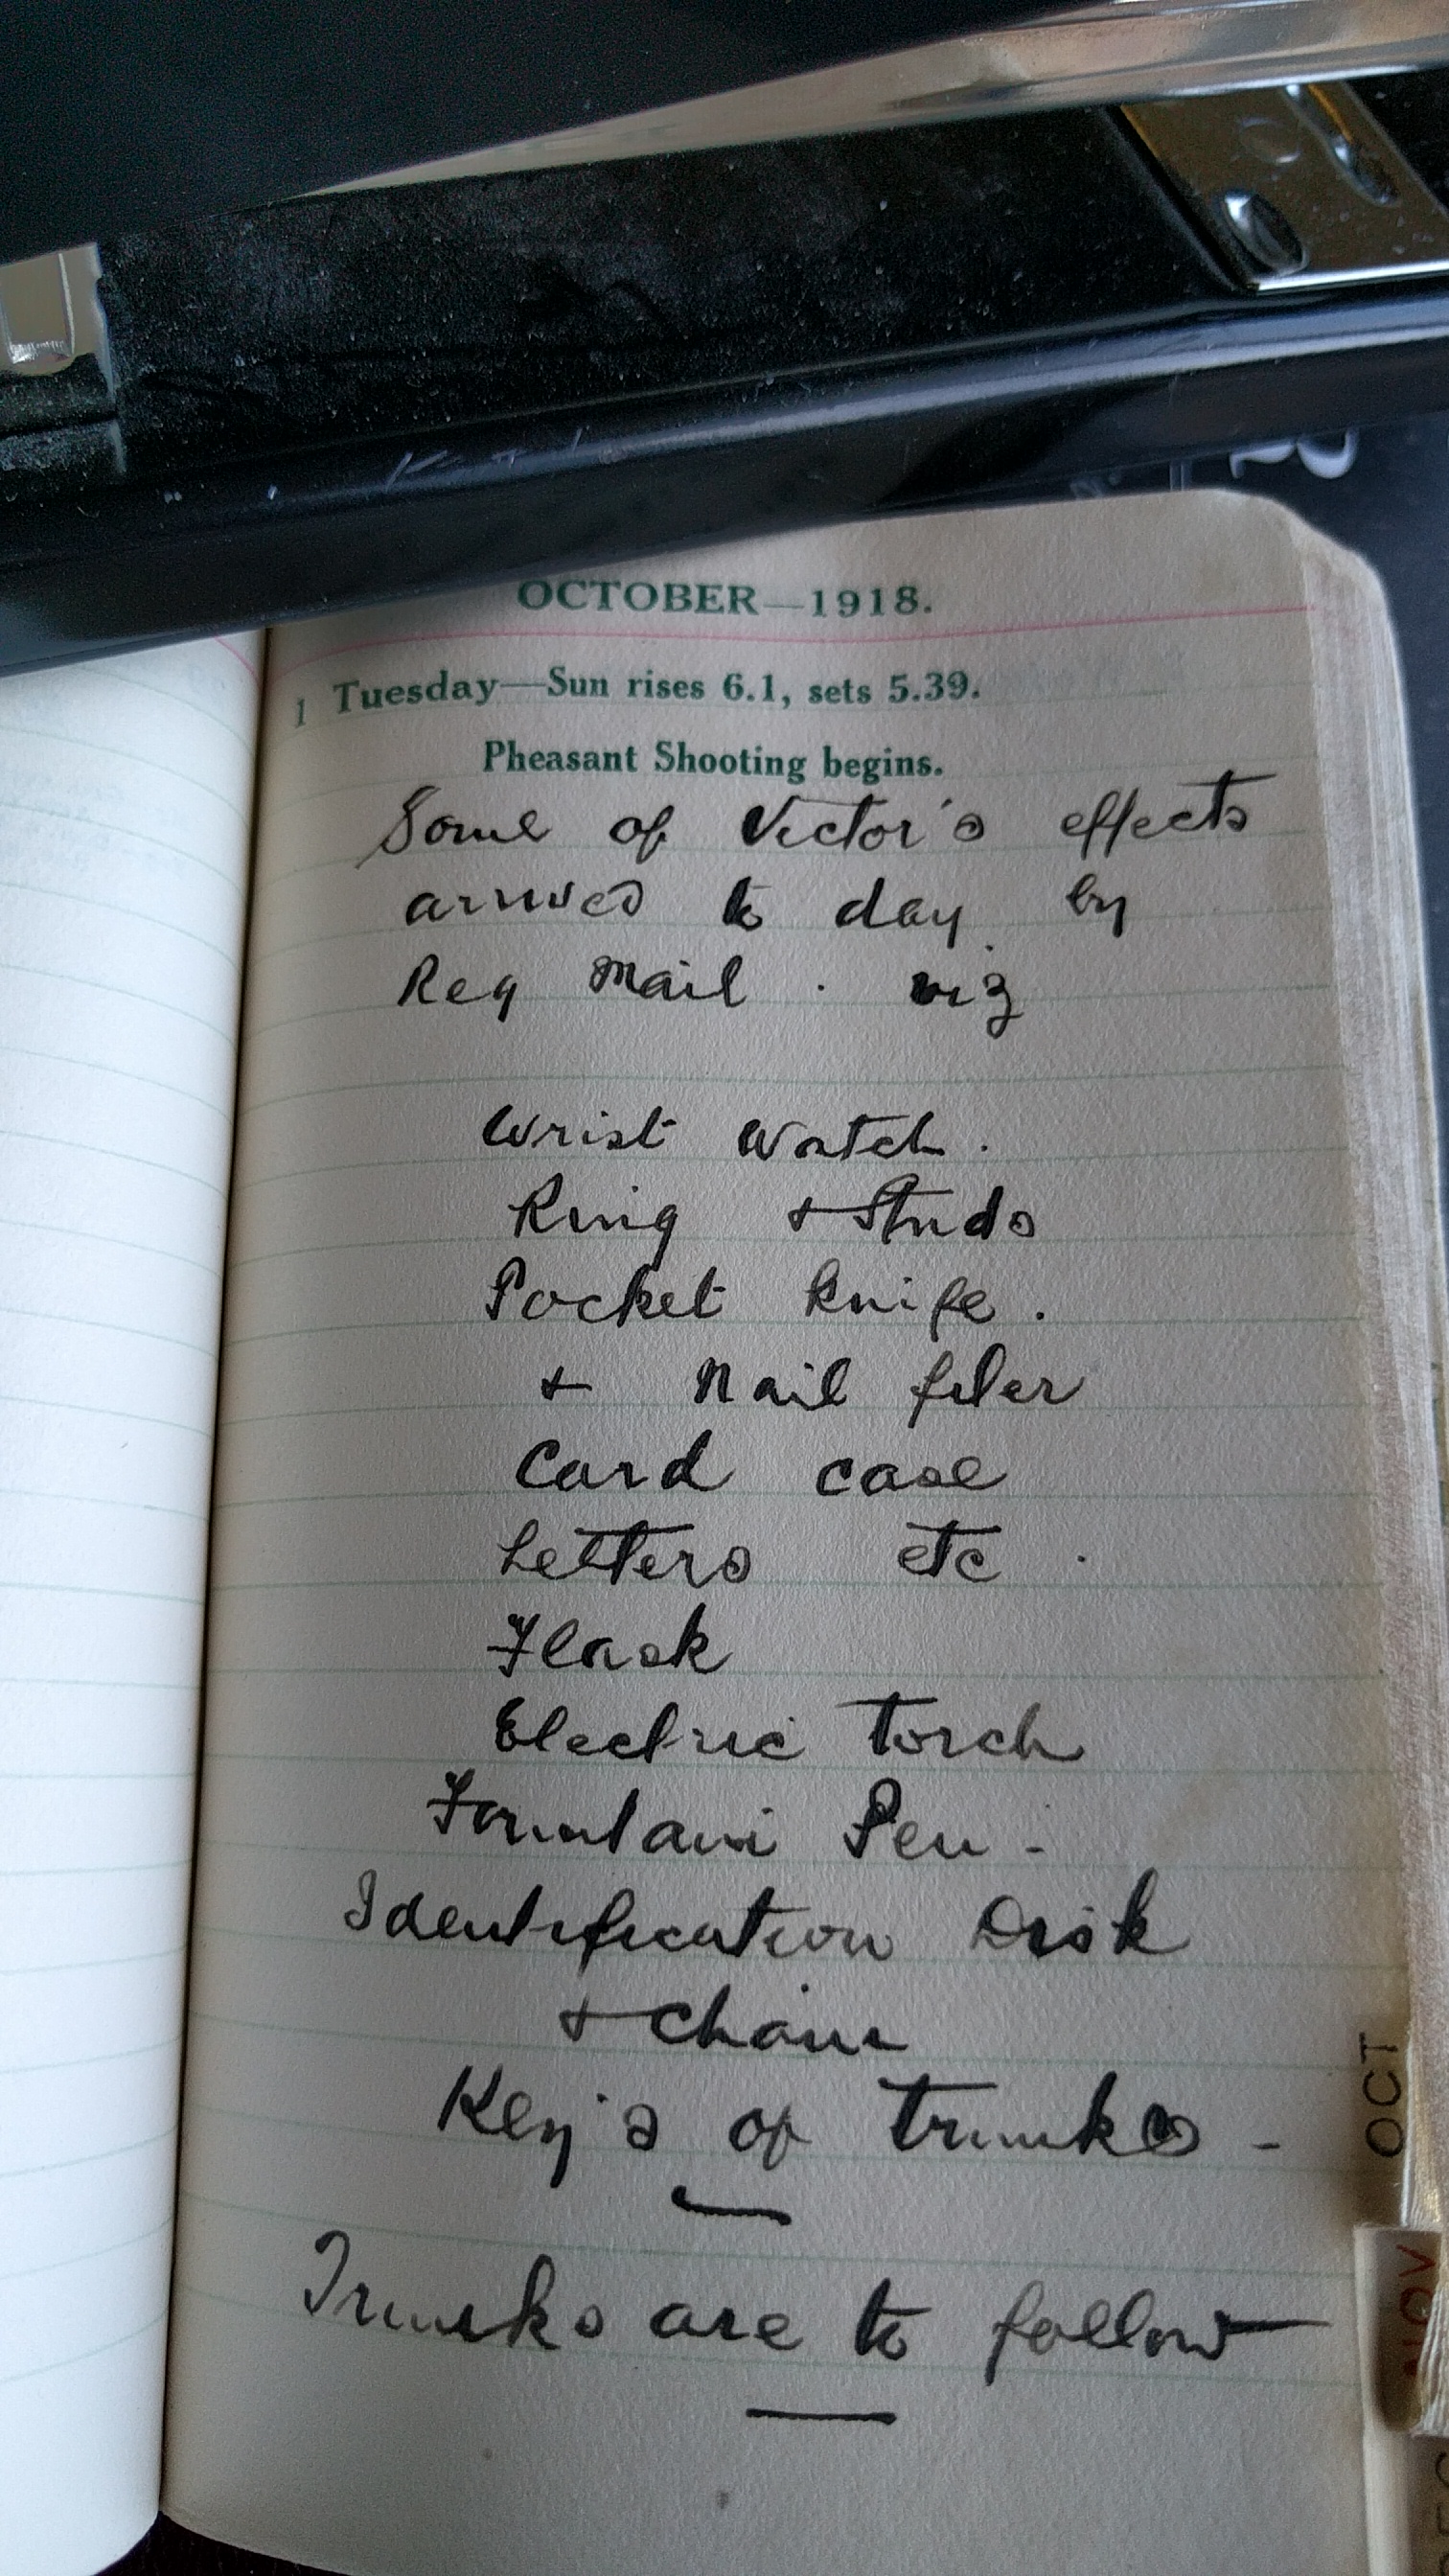 OCTOBER—1918.
1 Tuesday—Sun rises 6.1, sets 5.39.
Pheasant Shooting begins.
Some of Victor's effects
arrived to day by
Reg Mail . viz
Wrist Watch .
Ring + Studs
Pocket knife .
+ Nail filer
Card case
Letters etc .
Flask
Electric torch
Fountain Pen -
Identification Disk
+ Chain
Key's of trunks -
Trunks are to follow
OCT
NOV